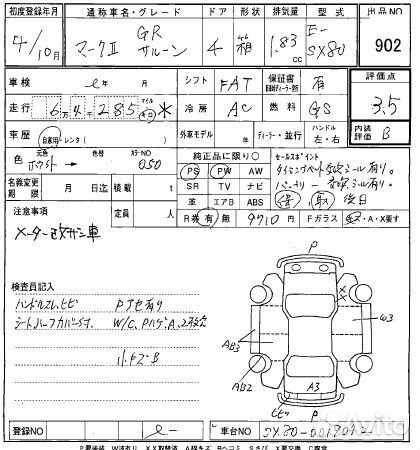 初度登録年月 通称車名・グレード ドア 形状 排気量 型式 出品NO
4/10月 マークⅡ GR サルーン 4 箱 1.83 cc E- SX80 902
車検 シフト FAT 保証書 有 評価点
走行 6万4千285 マイル km * 冷房 AC 燃料 GS 3.5
車歴 自家用・レンタ( ) 外車モデル 年 ディーラー・並行 ハンドル 左・右 内装評価 B
色 元色 ホワイト → 色替 カラーNO 050 純正品に限り○ セールスポイント
PS PW AW タイミングベルト交換シール有り。
名義変更期限 月 日迄 積載 t SR TV ナビ バッテリー 交換シール有り。
革 エアB ABS 保 取 後日
注意事項 定員 人 R券 有 無 9710円 Fガラス キズ・A・X要す
メーター改ザン車
検査員記入
ハンドルスレ、ヒビ
シートハーフカバー付 W/C, Pハゲ, A, 2枚欠
小キズB
P
X X
ω3
AB3
AB2
A3
ヒビ P
登録NO 車台NO SX80-0019042
P要塗装 W波有り XX取替済 A線キズ Bヘコミ Sさび X要交換 C腐食
Avito